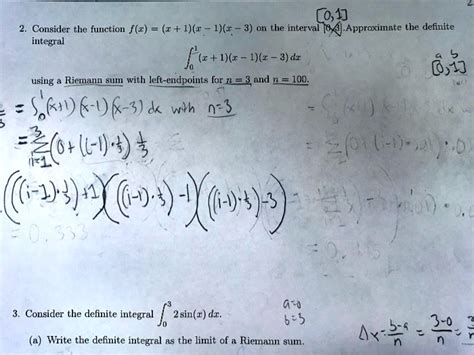 [0,1]
2. Consider the function f(x) = (x + 1)(x − 1)(x − 3) on the interval Approximate the definite
integral
∫₀¹ (x + 1)(x − 1)(x − 3) dx
a b
[0,1]
using a Riemann sum with left-endpoints for n = 3 and n = 100.
= ∫₀¹ (x+1) (x-1) (x-3) dx with n=3
= Σ_{i=1}^{3} (0 + (i-1)·1/3) 1/3
(((i-1)·1/3)+1)(((i-1)·1/3)-1)(((i-1)·1/3)-3)
= 0.333
3. Consider the definite integral ∫₀³ 2 sin(x) dx.
a=0
b=3
(a) Write the definite integral as the limit of a Riemann sum.
Δx = b-a/n = 3-0/n = 3